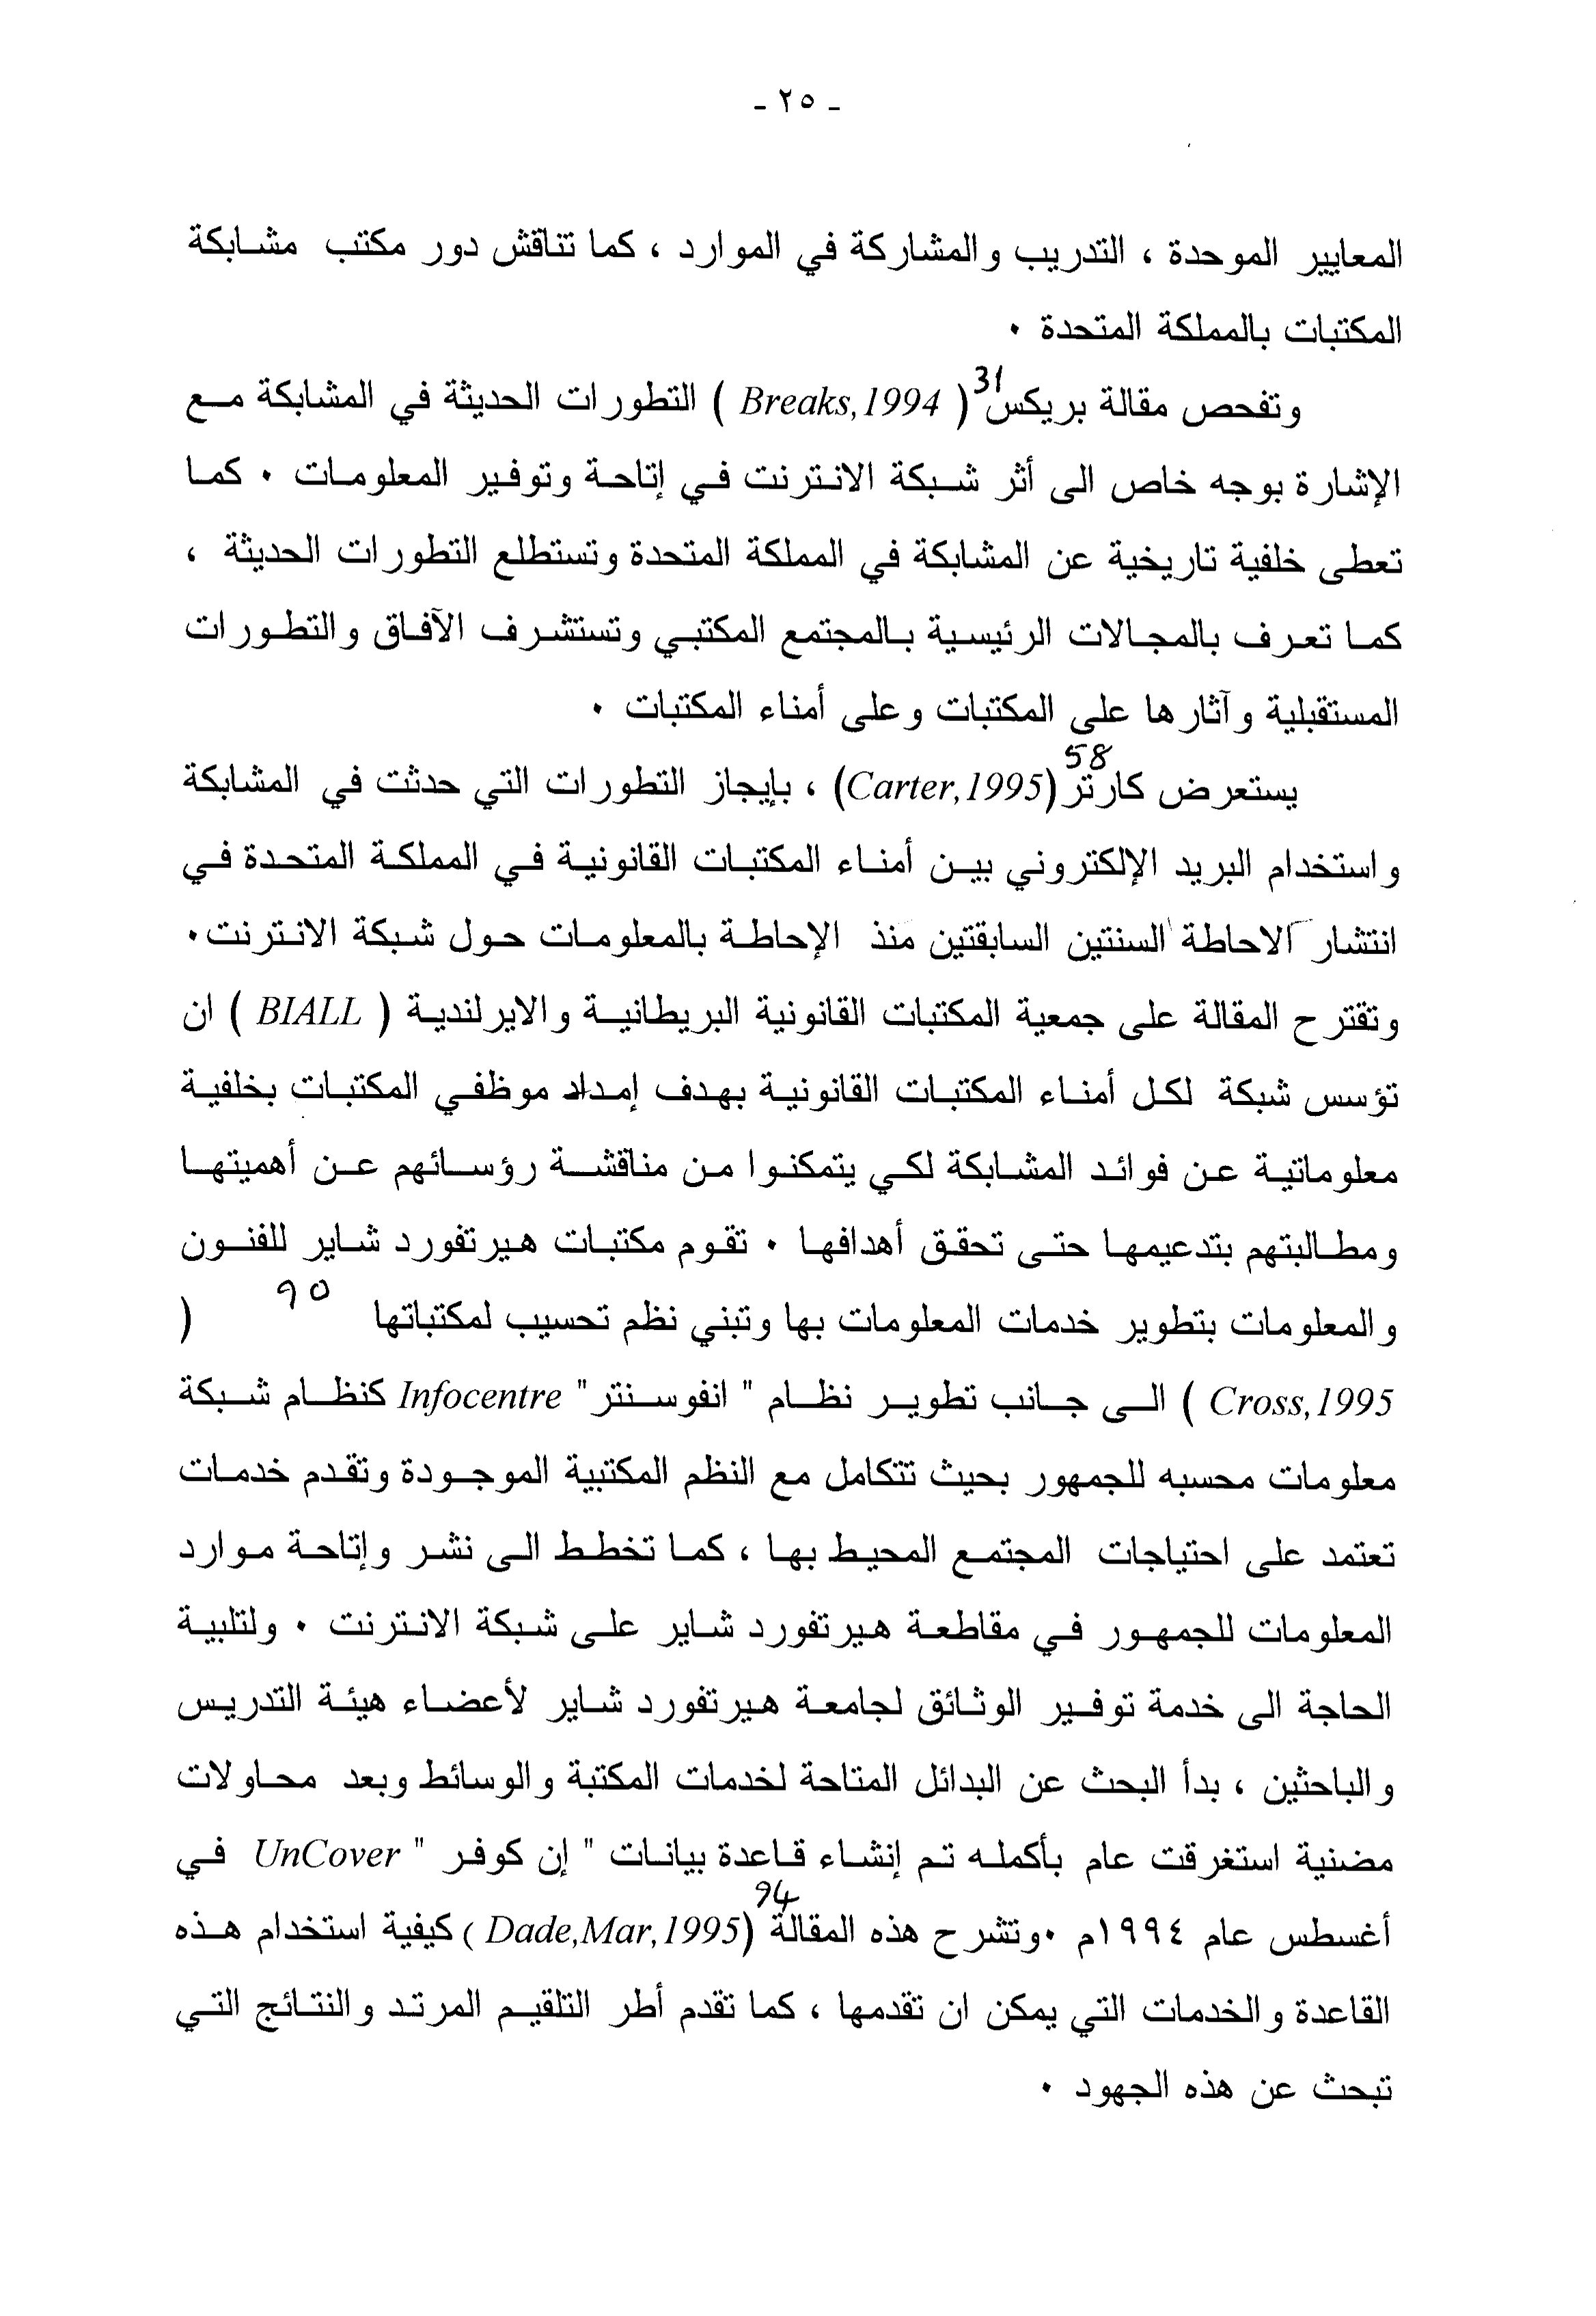 - ٢٥ -
المعايير الموحدة ، التدريب والمشاركة في الموارد ، كما تناقش دور مكتب مشابكة
المكتبات بالمملكة المتحدة ٠
وتفحص مقالة بريكس31 ( Breaks,1994 ) التطورات الحديثة في المشابكة مع
الإشارة بوجه خاص الى أثر شبكة الانترنت في إتاحة وتوفير المعلومات ٠ كما
تعطى خلفية تاريخية عن المشابكة في المملكة المتحدة وتستطلع التطورات الحديثة ،
كما تعرف بالمجالات الرئيسية بالمجتمع المكتبي وتستشرف الآفاق والتطورات
المستقبلية وآثارها على المكتبات وعلى أمناء المكتبات ٠
يستعرض كارتر58 (Carter,1995) ، بإيجاز التطورات التي حدثت في المشابكة
واستخدام البريد الإلكتروني بين أمناء المكتبات القانونية في المملكة المتحدة في
انتشار الاحاطة السنتين السابقتين منذ الإحاطة بالمعلومات حول شبكة الانترنت٠
وتقترح المقالة على جمعية المكتبات القانونية البريطانية والايرلندية ( BIALL ) ان
تؤسس شبكة لكل أمناء المكتبات القانونية بهدف إمداد موظفي المكتبات بخلفية
معلوماتية عن فوائد المشابكة لكي يتمكنوا من مناقشة رؤسائهم عن أهميتها
ومطالبتهم بتدعيمها حتى تحقق أهدافها ٠ تقوم مكتبات هيرتفورد شاير للفنون
والمعلومات بتطوير خدمات المعلومات بها وتبني نظم تحسيب لمكتباتها 90 (
Cross,1995 ) الى جانب تطوير نظام " انفوسنتر" Infocentre كنظام شبكة
معلومات محسبه للجمهور بحيث تتكامل مع النظم المكتبية الموجودة وتقدم خدمات
تعتمد على احتياجات المجتمع المحيط بها ، كما تخطط الى نشر وإتاحة موارد
المعلومات للجمهور في مقاطعة هيرتفورد شاير على شبكة الانترنت ٠ ولتلبية
الحاجة الى خدمة توفير الوثائق لجامعة هيرتفورد شاير لأعضاء هيئة التدريس
والباحثين ، بدأ البحث عن البدائل المتاحة لخدمات المكتبة والوسائط وبعد محاولات
مضنية استغرقت عام بأكمله تم إنشاء قاعدة بيانات " إن كوفر " UnCover في
أغسطس عام ١٩٩٤م ٠وتشرح هذه المقالة94 (Dade,Mar,1995 ) كيفية استخدام هذه
القاعدة والخدمات التي يمكن ان تقدمها ، كما تقدم أطر التلقيم المرتد والنتائج التي
تبحث عن هذه الجهود ٠